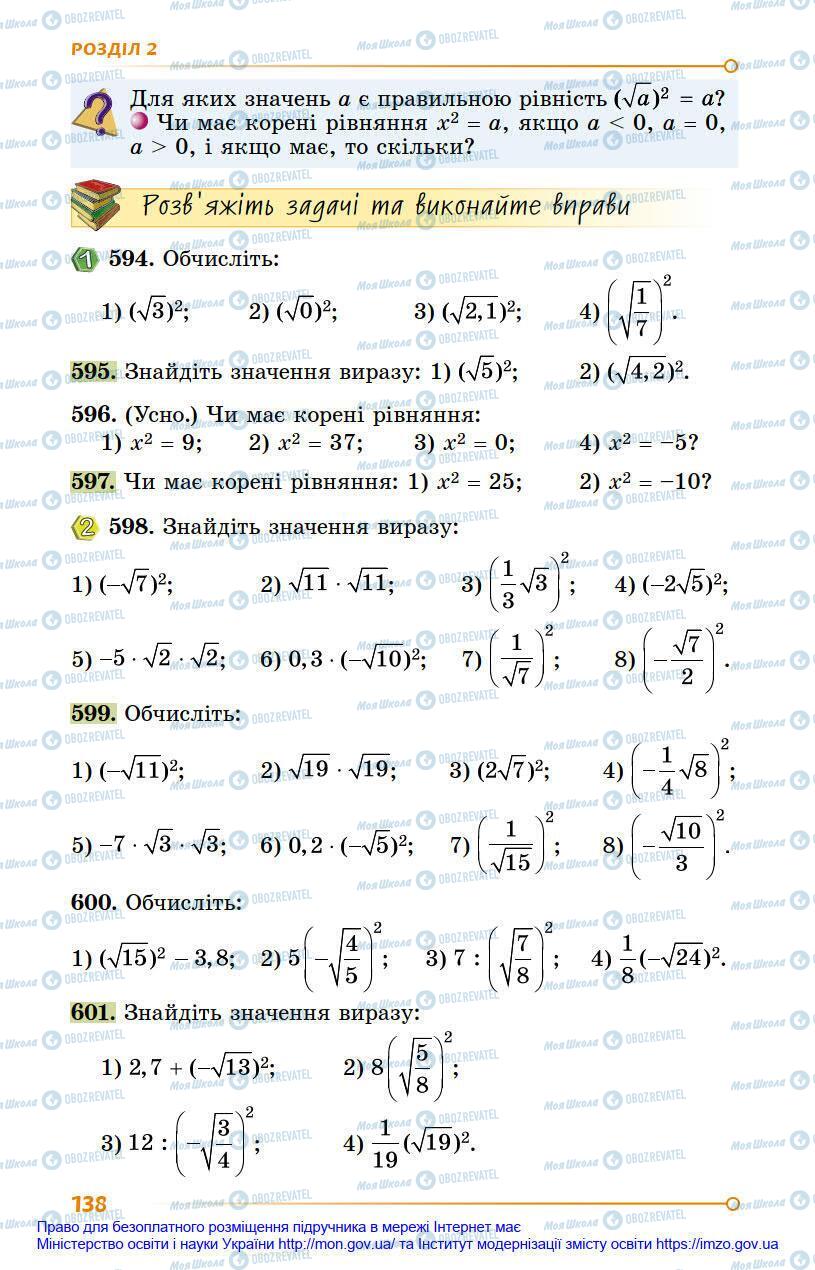 РОЗДІЛ 2
Для яких значень a є правильною рівність (√a)² = a?
Чи має корені рівняння x² = a, якщо a < 0, a = 0,
a > 0, і якщо має, то скільки?
Розв'яжіть задачі та виконайте вправи
1 594. Обчисліть:
1) (√3)²; 2) (√0)²; 3) (√2,1)²; 4) (√(1/7))².
595. Знайдіть значення виразу: 1) (√5)²; 2) (√4,2)².
596. (Усно.) Чи має корені рівняння:
1) x² = 9; 2) x² = 37; 3) x² = 0; 4) x² = −5?
597. Чи має корені рівняння: 1) x² = 25; 2) x² = −10?
2 598. Знайдіть значення виразу:
1) (−√7)²; 2) √11 · √11; 3) (1/3 √3)²; 4) (−2√5)²;
5) −5 · √2 · √2; 6) 0,3 · (−√10)²; 7) (1/√7)²; 8) (−√7/2)².
599. Обчисліть:
1) (−√11)²; 2) √19 · √19; 3) (2√7)²; 4) (−1/4 √8)²;
5) −7 · √3 · √3; 6) 0,2 · (−√5)²; 7) (1/√15)²; 8) (−√10/3)².
600. Обчисліть:
1) (√15)² − 3,8; 2) 5(−√(4/5))²; 3) 7 : (√(7/8))²; 4) 1/8 (−√24)².
601. Знайдіть значення виразу:
1) 2,7 + (−√13)²; 2) 8(√(5/8))²;
3) 12 : (−√(3/4))²; 4) 1/19 (√19)².
138
Право для безоплатного розміщення підручника в мережі Інтернет має
Міністерство освіти і науки України http://mon.gov.ua/ та Інститут модернізації змісту освіти https://imzo.gov.ua
МояШкола OBOZREVATEL